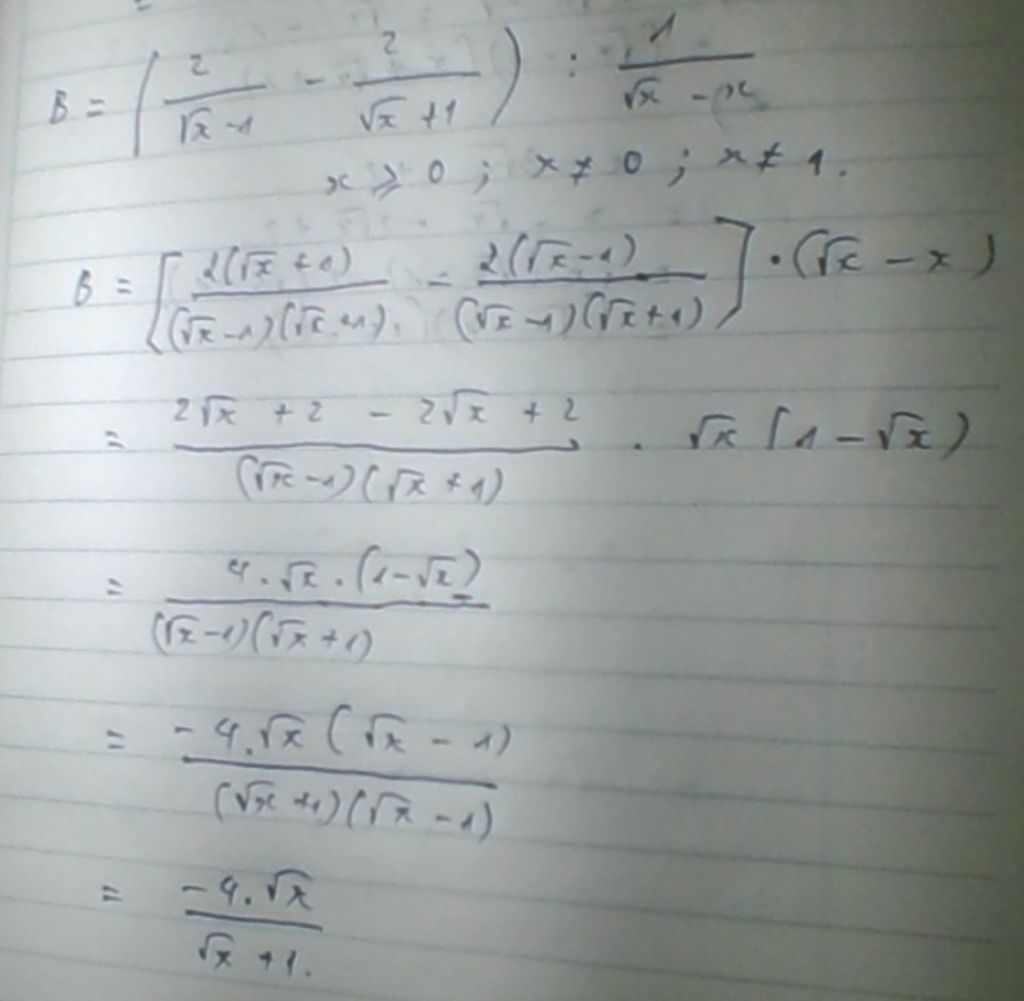 B = ( 2/(√x - 1) - 2/(√x + 1) ) : 1/(√x - x)
x ⩾ 0 ; x ≠ 0 ; x ≠ 1.
B = [ 2(√x + 1)/((√x - 1)(√x + 1)). - 2(√x - 1)/((√x - 1)(√x + 1)) ] . (√x - x)
= (2√x + 2 - 2√x + 2)/((√x - 1)(√x + 1)) . √x (1 - √x)
= (4 . √x . (1 - √x))/((√x - 1)(√x + 1))
= (-4.√x (√x - 1))/((√x + 1)(√x - 1))
= (-4.√x)/(√x + 1).